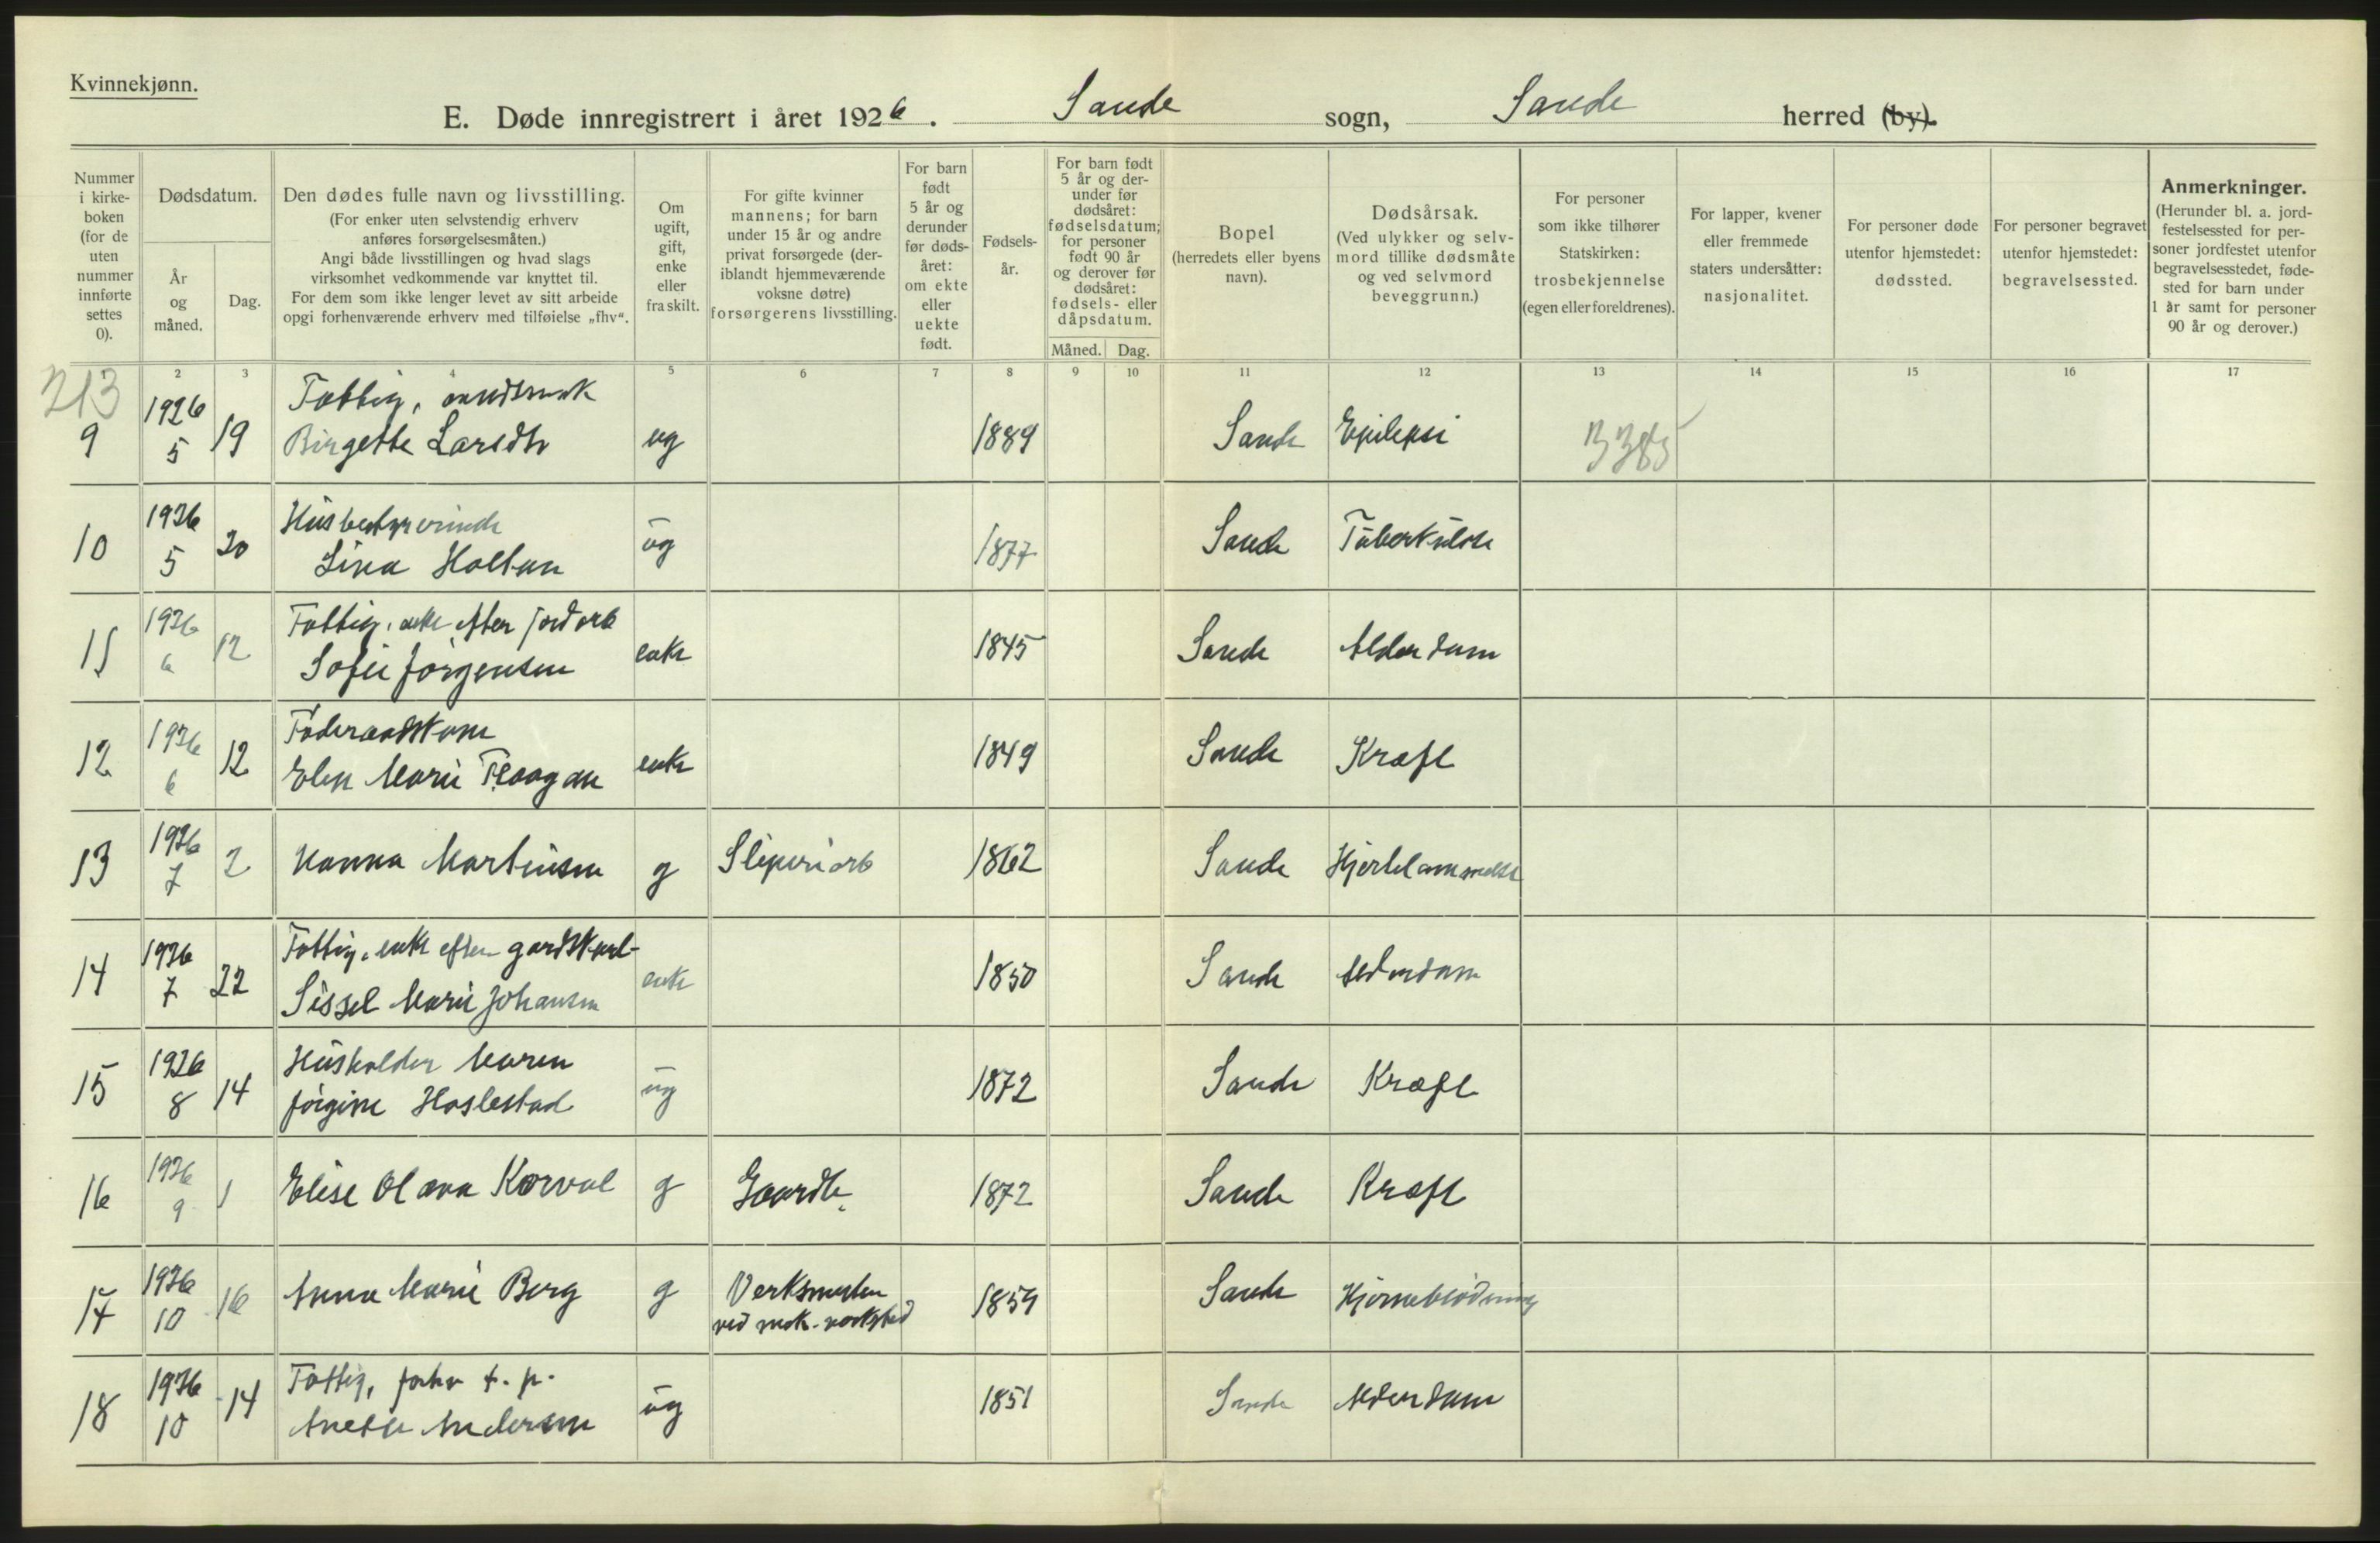 Kvinnekjønn.
E. Døde innregistrert i året 1926. Sande sogn, Sande herred (by).
Nummer i kirke-boken (for de uten nummer innførte settes 0).
Dødsdatum.
År og måned.
Dag.
Den dødes fulle navn og livsstilling.
(For enker uten selvstendig erhverv anføres forsørgelsesmåten.)
Angi både livsstillingen og hvad slags virksomhet vedkommende var knyttet til.
For dem som ikke lenger levet av sitt arbeide opgi forhenværende erhverv med tilføielse „fhv“.
Om ugift, gift, enke eller fraskilt.
For gifte kvinner mannens; for barn under 15 år og andre privat forsørgede (der-iblandt hjemmeværende voksne døtre) forsørgerens livsstilling.
For barn født 5 år og derunder før døds-året: om ekte eller uekte født.
Fødsels-år.
For barn født 5 år og der-under før dødsåret: fødselsdatum; for personer født 90 år og derover før dødsåret: fødsels- eller dåpsdatum.
Måned.
Dag.
Bopel (herredets eller byens navn).
Dødsårsak. (Ved ulykker og selv-mord tillike dødsmåte og ved selvmord beveggrunn.)
For personer som ikke tilhører Statskirken: trosbekjennelse (egen eller foreldrenes).
For lapper, kvener eller fremmede staters undersåtter: nasjonalitet.
For personer døde utenfor hjemstedet: dødssted.
For personer begravet utenfor hjemstedet: begravelsessted.
Anmerkninger.
(Herunder bl. a. jord-festelsessted for per-soner jordfestet utenfor begravelsesstedet, føde-sted for barn under 1 år samt for personer 90 år og derover.)
2 3 4 5 6 7 8 9 10 11 12 13 14 15 16 17
213
9 1926 5 19 Fattig, aandssvak
Birgette Larsdtr ug 1889 Sande Epilepsi
10 1926 5 20 Husbestyrerinde
Lina Holtan ug 1877 Sande Tuberkulose
11 1926 6 12 Fattig, enke efter jordarb
Sofie Jörgensen enke 1845 Sande Alderdom
12 1926 6 12 Föderaadskone
Elen Marie Haagan enke 1849 Sande Kræft
13 1926 7 2 Hanna Martinsen g Sliperiarb 1862 Sande Hjertelammelse
14 1926 7 22 Fattig, enke efter gardskarl
Sissel Marie Johansen enke 1850 Sande Alderdom
15 1926 8 14 Husholder Maren
Jörgine Haslestad ug 1872 Sande Kræft
16 1926 9 1 Elise Olava Korval g Gaardb. 1872 Sande Kræft
17 1926 10 16 Anna Marie Berg g Verksmester
ved mek. verksted 1859 Sande Hjerneblödning
18 1926 10 14 Fattig, forhv t. p.
Anette Andersen ug 1851 Sande Alderdom